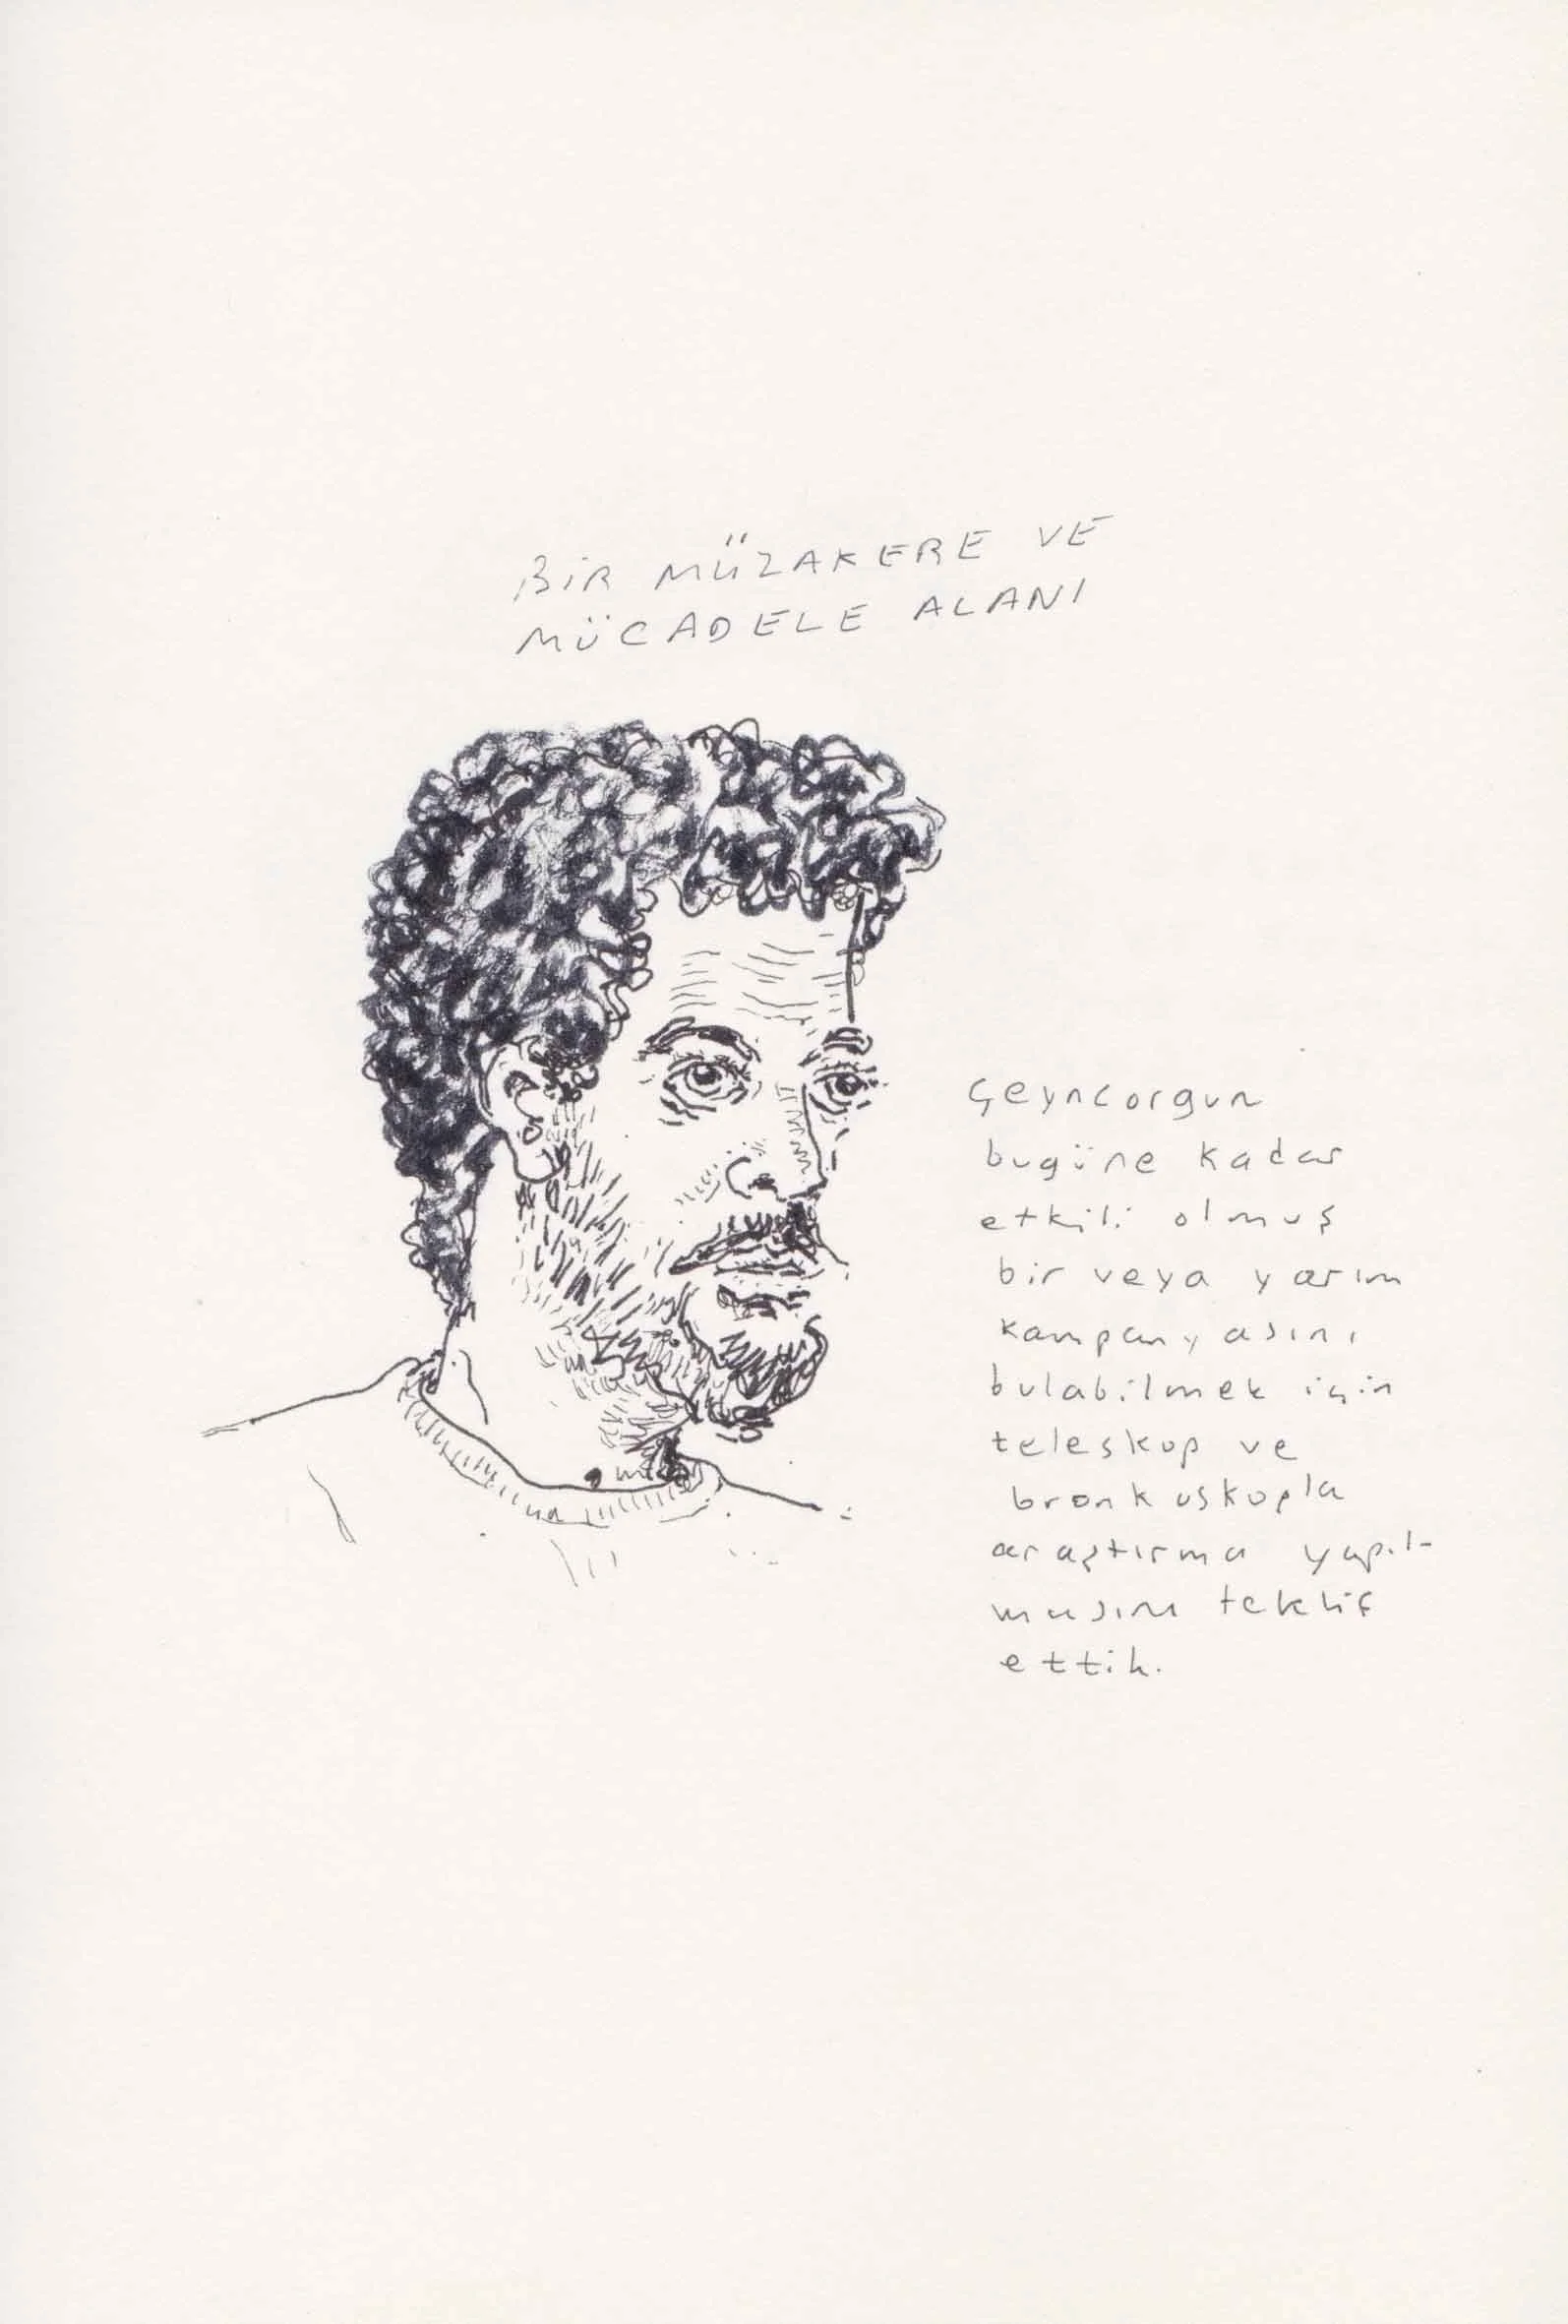 BİR MÜZAKERE VE
MÜCADELE ALANI
Çeyncorgun
bugüne kadar
etkili olmuş
bir veya yarım
kampanyasını
bulabilmek için
teleskop ve
bronkoskopla
araştırma yapıl-
masını teklif
ettik.